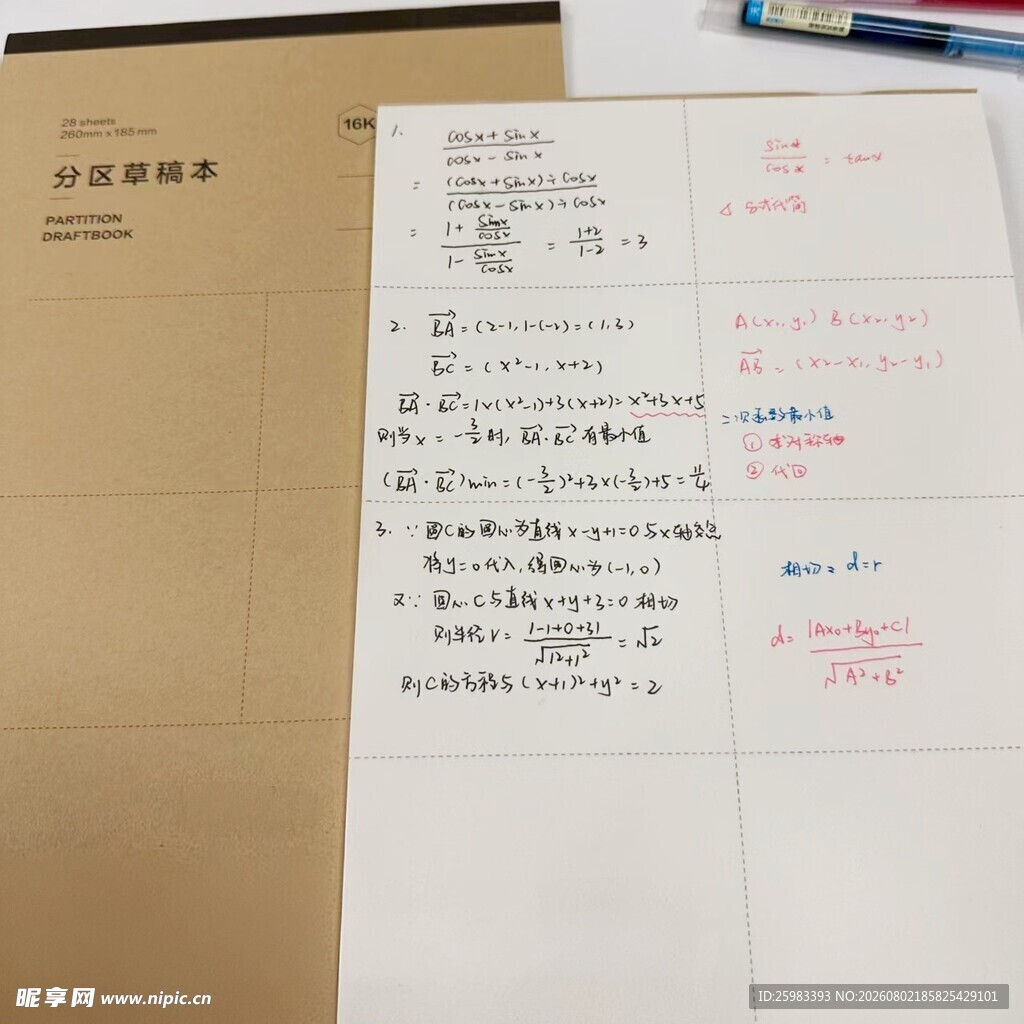 28 sheets
260mm x 185mm
16K
分区草稿本
PARTITION
DRAFTBOOK
1.
cosx + sinx / cosx - sinx
= (cosx + sinx) ÷ cosx / (cosx - sinx) ÷ cosx
= 1 + sinx/cosx / 1 - sinx/cosx = 1+2 / 1-2 = 3
sinx / cosx = tanx
2. BA = (2-1, 1-(-2) = (1,3)
BC = (x²-1, x+2)
BA · BC = 1×(x²-1)+3(x+2) = x²+3x+5
则当x = -3/2时, BA·BC有最小值
(BA · BC)min = (-3/2)²+3×(-3/2)+5 = 11/4
A(x₁,y₁) B(x₂,y₂)
AB = (x₂-x₁, y₂-y₁)
二次函数最小值
① 求对称轴
② 代回
3. ∵ 圆C的圆心为直线x-y+1=0与x轴交点
将y=0代入,得圆心为(-1,0)
又∵ 圆心C与直线x+y+3=0相切
则半径r = |-1+0+3| / √1²+1² = √2
则C的方程为(x+1)²+y² = 2
相切: d=r
d = |Ax₀+By₀+C| / √A²+B²
昵享网 www.nipic.cn
ID:25983393 NO:20260802185825429101